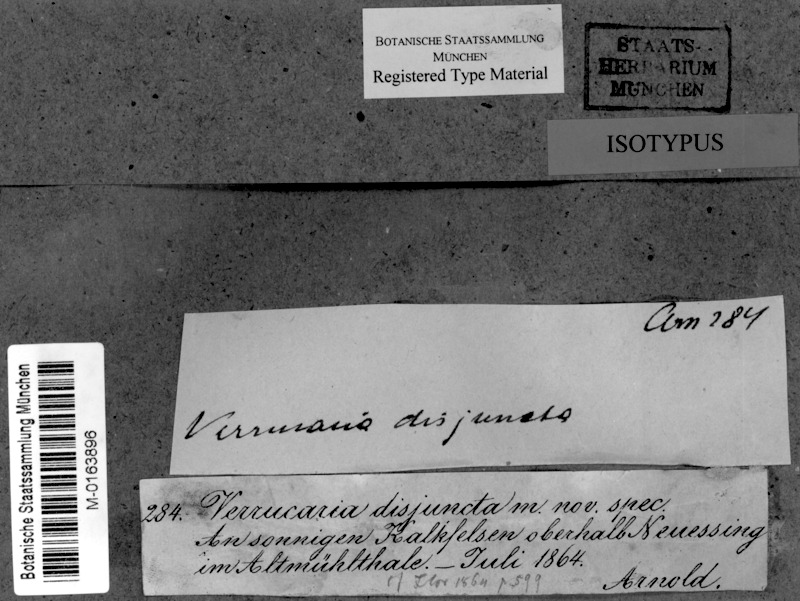 BOTANISCHE STAATSSAMMLUNG
MÜNCHEN
Registered Type Material
STAATS-
HERBARIUM
MÜNCHEN
ISOTYPUS
Arn 284
Verrucaria disjuncta
Botanische Staatssammlung München
M-0163896
284. Verrucaria disjuncta m. nov. spec.
An sonnigen Kalkfelsen oberhalb Neuessing
im Altmühlthale. — Juli 1864.
Flor 1864 p 599
Arnold.